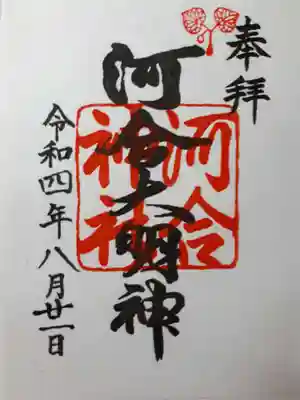 奉拝
河合大明神
河合
神社
令和四年八月廿一日